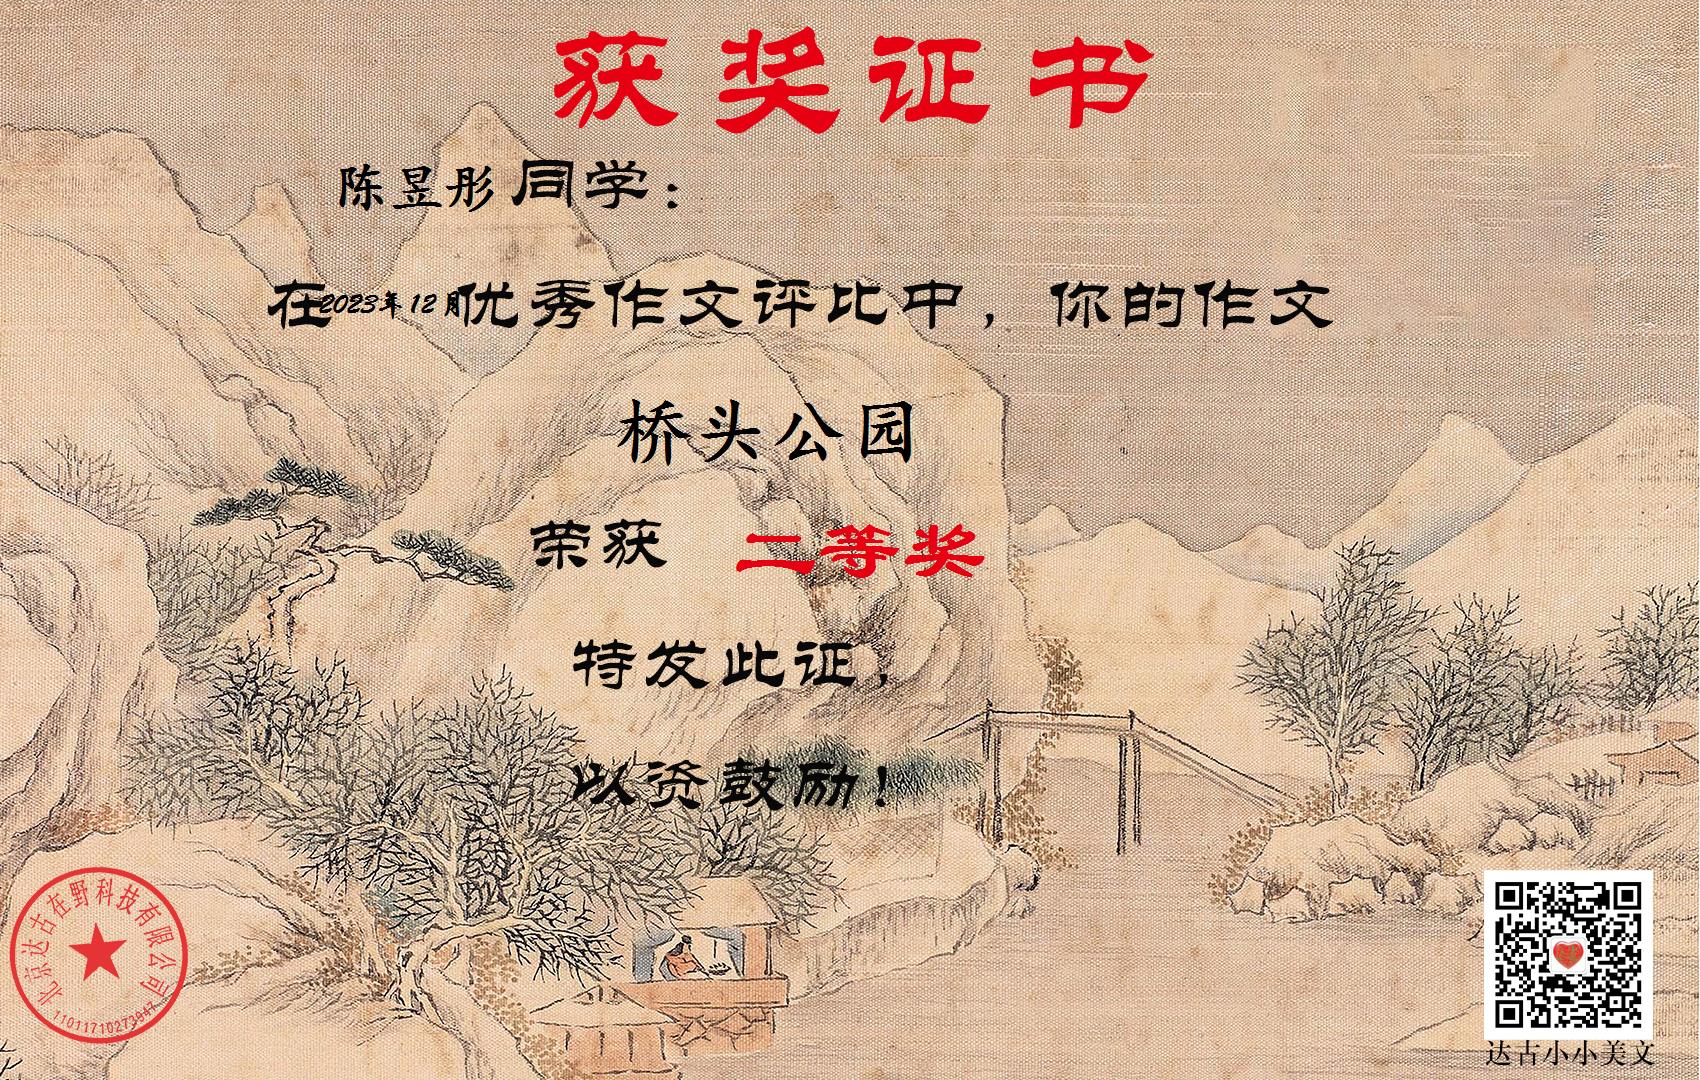 获奖证书
陈昱彤同学：
在2023年12月优秀作文评比中，你的作文
桥头公园
荣获 二等奖
特发此证，
以资鼓励！
北京达古在野科技有限公司
11011710273947
达古小小美文